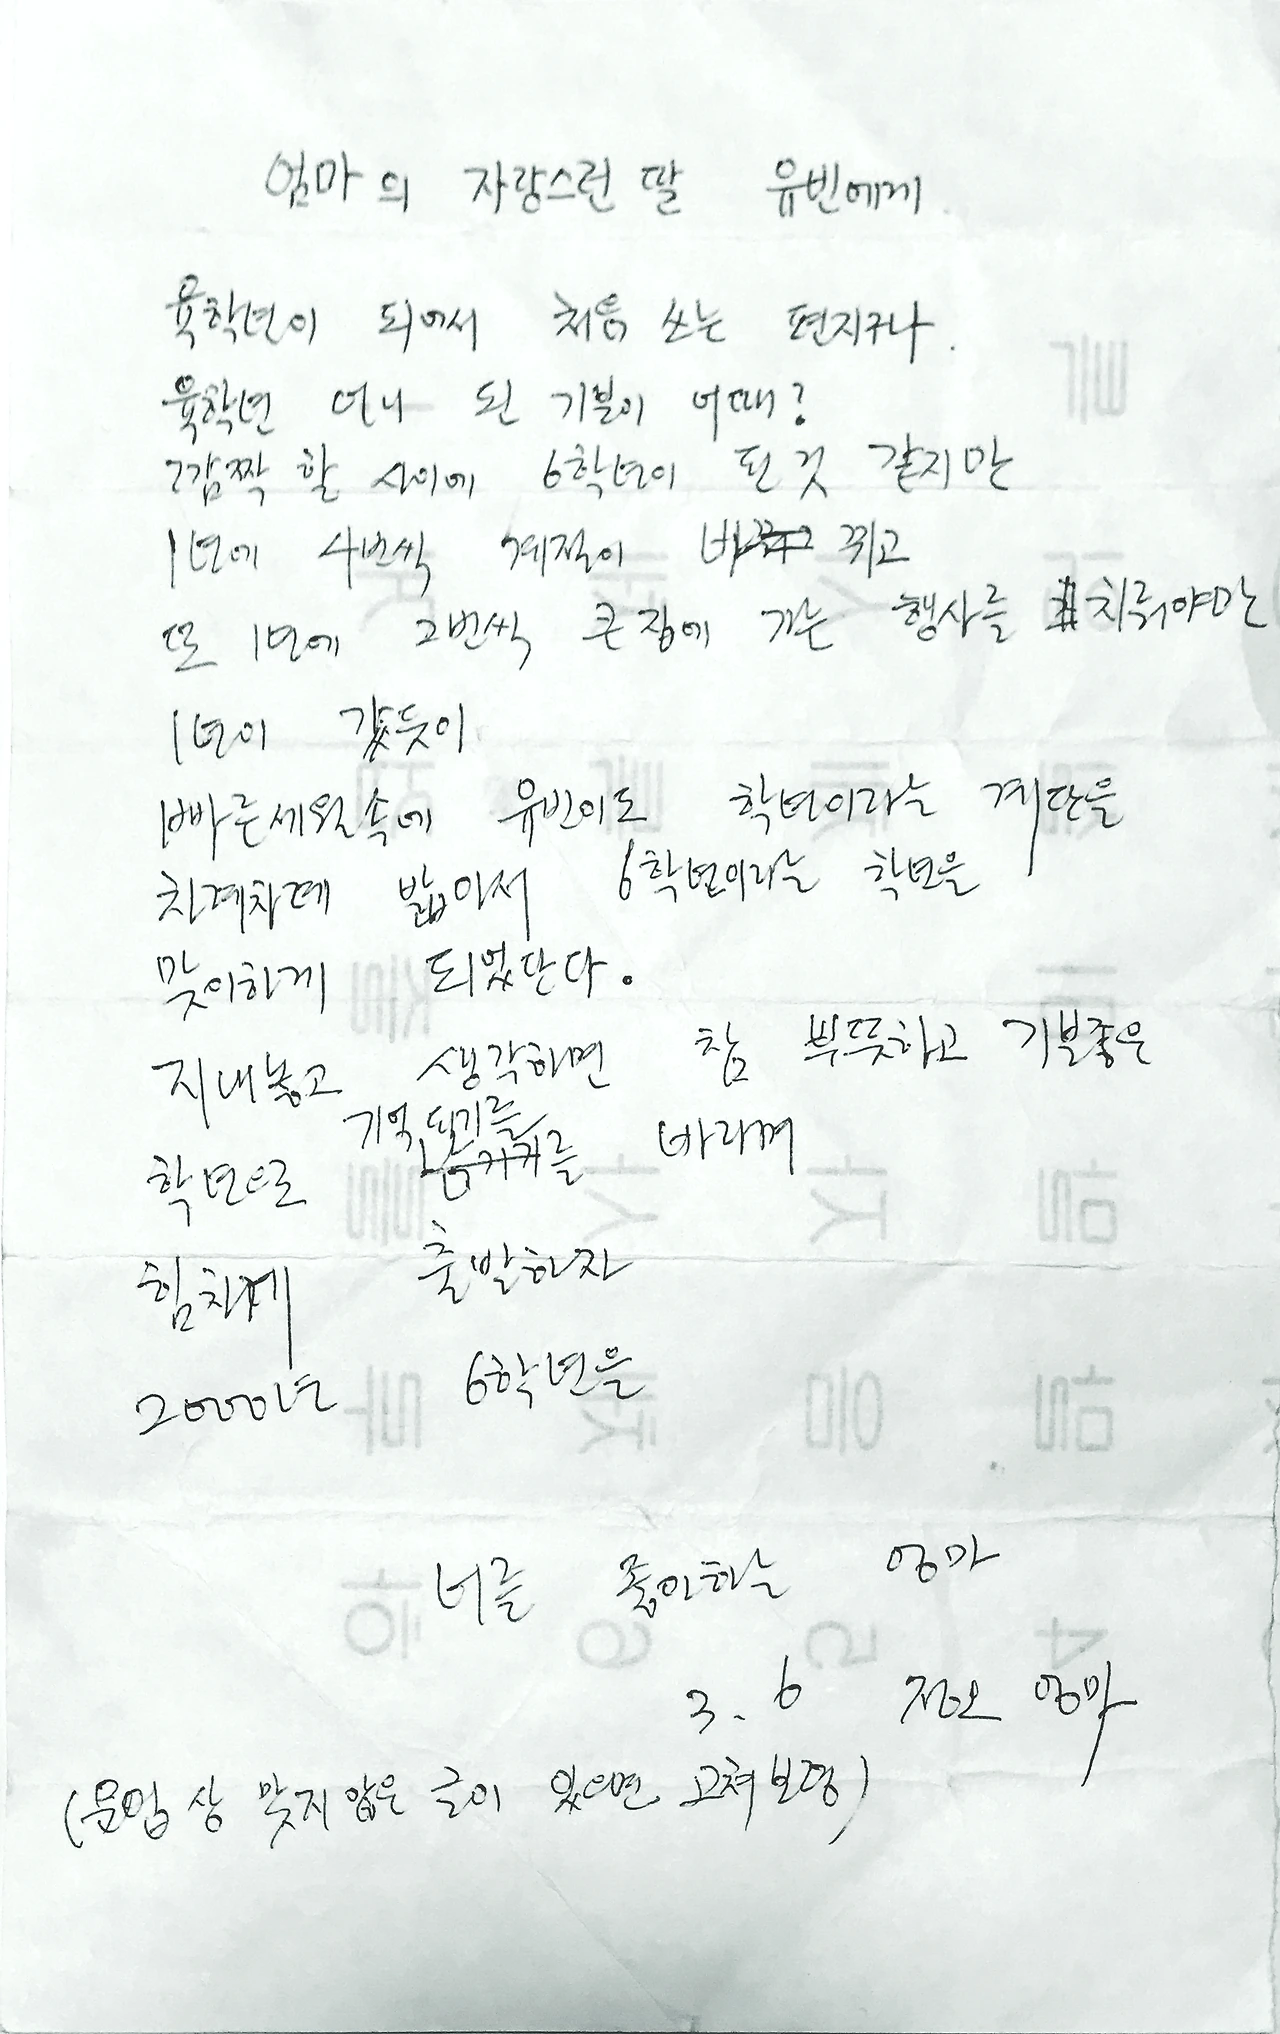 엄마의 자랑스런 딸 유빈에게
육학년이 되어서 처음 쓰는 편지구나.
육학년 언니 된 기분이 어때?
깜짝 할 사이에 6학년이 된 것 같지만
1년에 4번씩 계절이 바뀌고
또 1년에 2번씩 큰집에 가는 행사를 치뤄야만
1년이 가듯이
빠른세월속에 유빈이도 학년이라는 계단을
차례차례 밟아서 6학년이라는 학년을
맞이하게 되었단다.
지내놓고 생각하면 참 뿌듯하고 기분좋은
학년으로 기억되기를 바라며
힘차게 출발하자
2000년 6학년을
너를 좋아하는 엄마
3. 6 엄마
(문법상 맞지않은 글이 있으면 고쳐보렴)